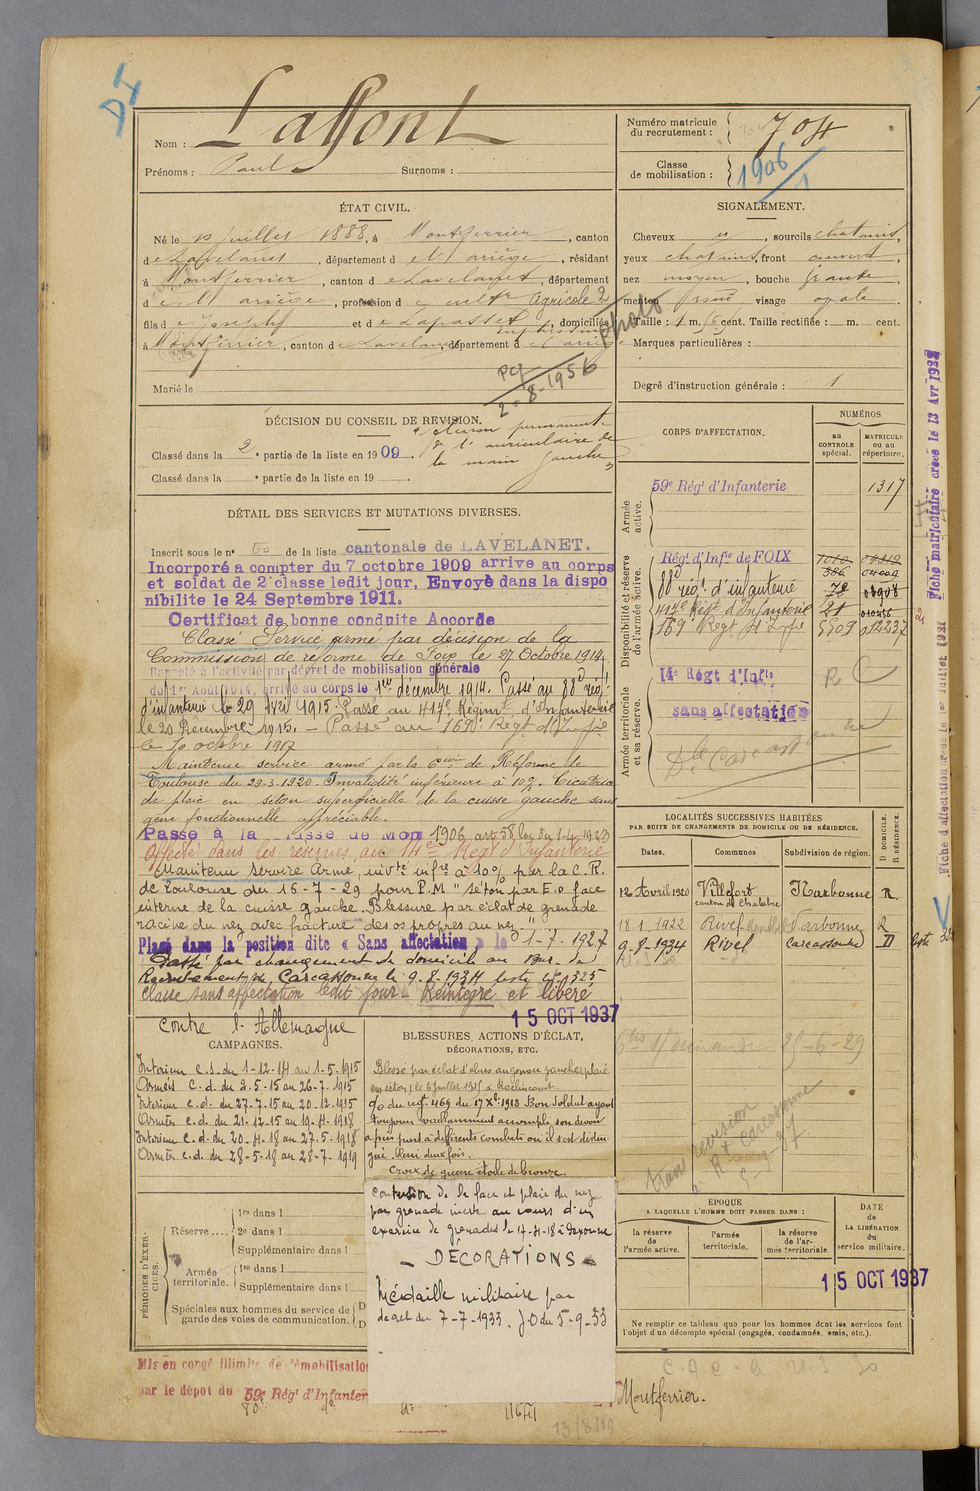 Nom : Laffont
Prénoms : Paul Surnoms :
Numéro matricule du recrutement : 704
Classe de mobilisation : 1906
ÉTAT CIVIL.
Né le 10 juillet 1888, à Montferrier, canton
de Lavelanet, département de l'Ariège, résidant
à Montferrier, canton de Lavelanet, département
de l'Ariège, profession de cultr Agricole 2
fils de Joseph et de Lapasset, domiciliés
à Montferrier, canton de Lavelanet, département d
Marié le
2-8-1956
SIGNALEMENT.
Cheveux, sourcils chatains,
yeux chatains, front couvert,
nez moyen, bouche grande,
menton rond visage ovale.
Taille : 1 m. cent. Taille rectifiée : m. cent.
Marques particulières :
Degré d'instruction générale : 1
DÉCISION DU CONSEIL DE REVISION.
Classé dans la 2e partie de la liste en 1909.
permanente
de l'auriculaire de
la main gauche
Classé dans la e partie de la liste en 19
DÉTAIL DES SERVICES ET MUTATIONS DIVERSES.
Inscrit sous le n° de la liste cantonale de LAVELANET.
Incorporé a compter du 7 octobre 1909 arrive au corps
et soldat de 2e classe ledit jour, Envoyé dans la dispo
nibilite le 24 Septembre 1911.
Certificat de bonne conduite Accorde
Classé Service armé par décision de la
Commission de réforme de Foix le 27 Octobre 1914
Rappelé à l'activité par décret de mobilisation générale
du 1er Août 1914, arrivé au corps le 1er décembre 1914. Passé au 88e rég.t
d'infanterie le 29 Mai 1915. Passé au 417e Régimt d'Infanterie
le 29 Décembre 1915. - Passé au 169e Regt d'Infie
le 10 octobre 1917
Maintenu service armé par la Coson de Réforme de
Toulouse du 29-3-1920. Invalidité inférieure à 10%. Cicatrice
de plaie en séton superficielle de la cuisse gauche sans
gêne fonctionnelle appréciable.
Passé à la classe de Mon 1906 art 58 loi du 1-4 1923
Affecté dans les réserves au 14e Régt d'Infanterie
Maintenu Service Armé, invté infre à 10% par la C.R.
de Toulouse du 16-7-29 pour P.M "séton par E.o face
interne de la cuisse gauche. Blessure par éclat de grenade
racine du nez avec fracture des os propres au nez"
Placé dans la position dite « Sans affectation » le 1-7-1927
Passé par changement de domicile au Bur. de
Recrutement de Carcassonne le 9.8.1934 liste n° 1325
Classe sans affectation ledit jour - Réintégré et libéré
15 OCT 1937
CORPS D'AFFECTATION.
NUMÉROS
AU CONTROLE spécial.
MATRICULE ou au répertoire.
Armée active.
59e Régt d'Infanterie 1317
Disponibilité et réserve de l'armée active.
Régt d'Infie de FOIX
88e régt d'infanterie
417e Régt d'Infanterie 21
169e Régt d'Infie 5509 012237
Armée territoriale et sa réserve.
14e Régt d'Infie
sans affectation
LOCALITÉS SUCCESSIVES HABITÉES
PAR SUITE DE CHANGEMENTS DE DOMICILE OU DE RÉSIDENCE.
Dates. Communes Subdivision de région. D. DOMICILE. R. RÉSIDENCE.
12 Avril 1920 Villefort Narbonne R.
canton de Chalabre
18-1-1922 Rivel Narbonne R
9-8-1934 Rivel Carcassonne D
25-6-29
trans revision
à Rt Carcassonne
contre l'Allemagne
CAMPAGNES.
Intérieur C.S. du 1-12-14 au 1-5-1915
Armées C. d. du 2-5-15 au 26-7-1915
Intérieur C.d. du 27-7-15 au 20-12-1915
Armées C.d. du 21-12-15 au 19-4-1918
Intérieur C.d. du 20-4-18 au 27-5-1918
Armées C.d. du 28-5-18 au 28-7-1919
BLESSURES, ACTIONS D'ÉCLAT,
DÉCORATIONS, ETC.
Blessé par éclat d'obus au genou gauche (plaie
en séton) le 6 juillet 1915 à
o/o du regt 469 du 17 Xbre 1918 Bon Soldat ayant
toujours vaillamment accompli son devoir
a pris part à différents combats où il s'est distin
gué. Blessé deux fois.
Croix de guerre étoile de bronze.
contusion de la face et plaie du nez
par grenade inerte au cours d'un
exercice de grenades le 17-4-18 à Bayonne
- DÉCORATIONS -
Médaille militaire par
décret du 7-7-1933. JO du 5-9-33
PÉRIODES D'EXERCICES.
Réserve....
1re dans l
2e dans l
Supplémentaire dans l
Armée territoriale.
1re dans l
Supplémentaire dans l
Spéciales aux hommes du service de garde des voies de communication.
EPOQUE
A LAQUELLE L'HOMME DOIT PASSER DANS :
la réserve de l'armée active.
l'armée territoriale.
la réserve de l'armée territoriale.
DATE de LA LIBÉRATION du service militaire.
15 OCT 1937
Ne remplir ce tableau que pour les hommes dont les services font
l'objet d'un décompte spécial (engagés, condamnés, omis, etc.).
Mis en congé illimité de démobilisation
par le dépôt du 59e Régt d'Infanter
Montferrier.
13/8/19
Fiche matriculaire créée le 13 Avr 1922
Fiche d'affectation créée le 1er Juillet 1921